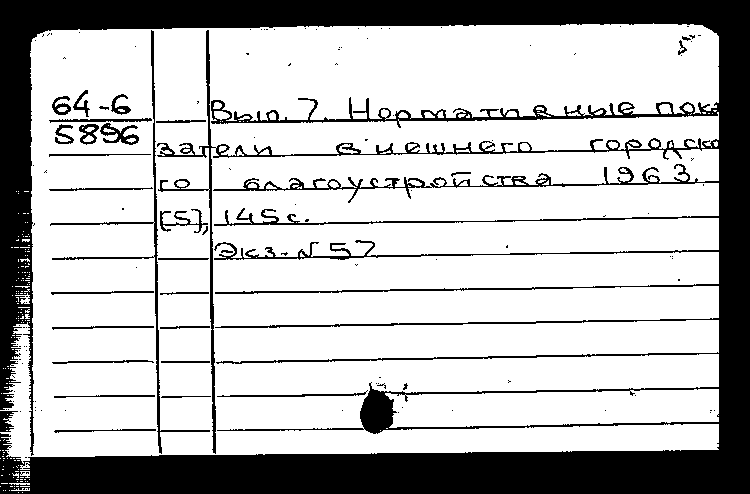 5
64-6 Вып. 7. Нормативные пока
5896 затели внешнего городско
го благоустройства 1963.
[5], 145 с.
Экз. N 57